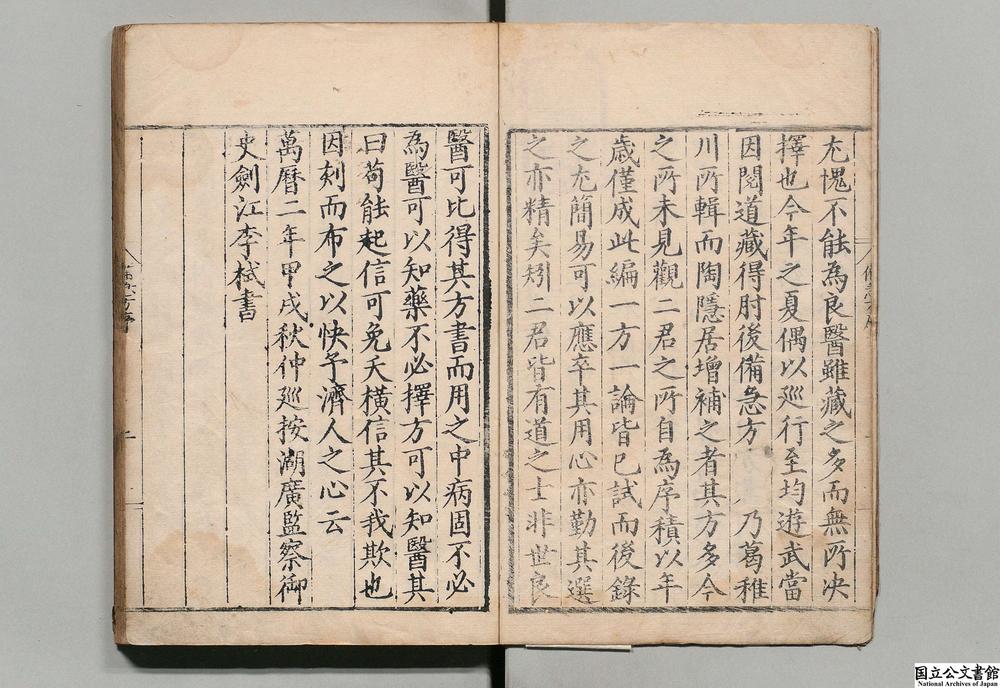 尤愧不能為良醫雖藏之多而無所决
擇也今年之夏偶以廵行至均遊武當
因閱道藏得肘後備急方乃葛稚
川所輯而陶隱居增補之者其方多今
之所未見觀二君之所自為序積以年
歲僅成此編一方一論皆已試而後錄
之尤簡易可以應卒其用心亦勤其選
之亦精矣矧二君皆有道之士非世良
醫可比得其方書而用之中病固不必
為醫可以知藥不必擇方可以知醫其
曰苟能起信可免夭橫信其不我欺也
因刻而布之以快予濟人之心云
萬曆二年甲戌秋仲廵按湖廣監察御
史劍江李栻書
国立公文書館
National Archives of Japan